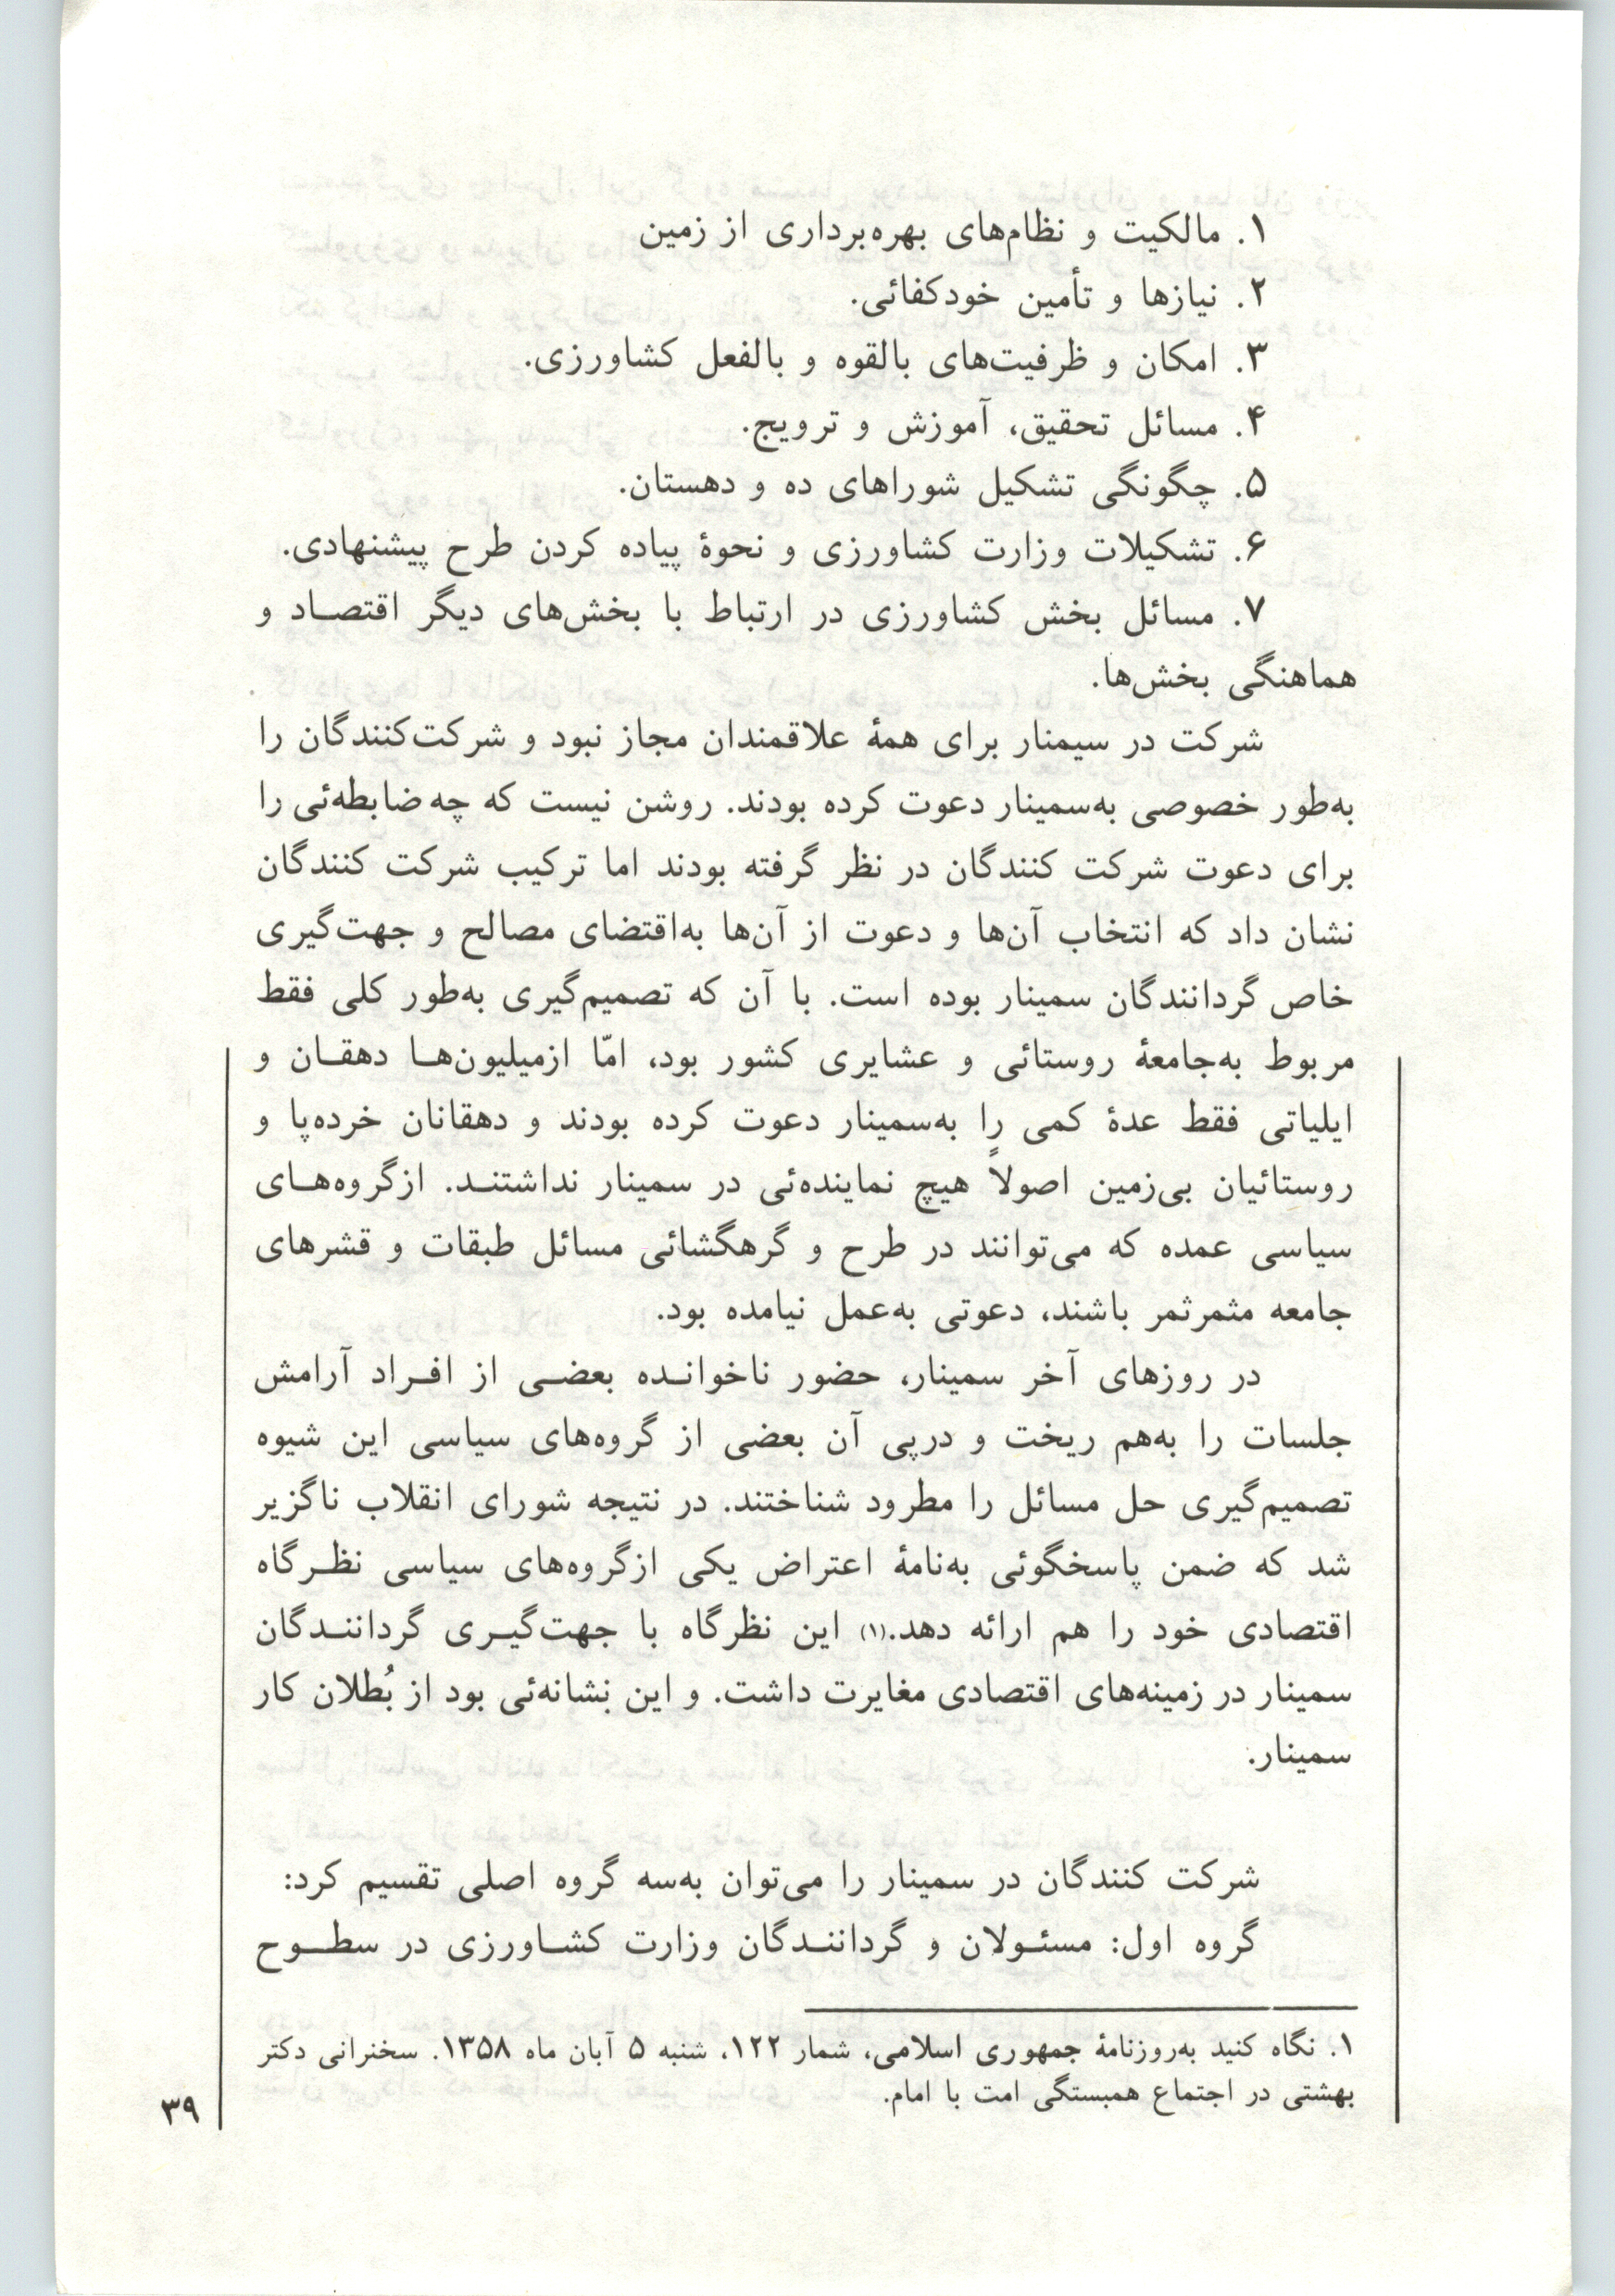 ۱. مالکیت و نظام‌های بهره‌برداری از زمین
۲. نیازها و تأمین خودکفائی.
۳. امکان و ظرفیت‌های بالقوه و بالفعل کشاورزی.
۴. مسائل تحقیق، آموزش و ترویج.
۵. چگونگی تشکیل شوراهای ده و دهستان.
۶. تشکیلات وزارت کشاورزی و نحوهٔ پیاده کردن طرح پیشنهادی.
۷. مسائل بخش کشاورزی در ارتباط با بخش‌های دیگر اقتصـاد و
هماهنگی بخش‌ها.
شرکت در سیمنار برای همهٔ علاقمندان مجاز نبود و شرکت‌کنندگان را
به‌طور خصوصی به‌سمینار دعوت کرده بودند. روشن نیست که چه ضابطه‌ئی را
برای دعوت شرکت کنندگان در نظر گرفته بودند اما ترکیب شرکت کنندگان
نشان داد که انتخاب آن‌ها و دعوت از آن‌ها به‌اقتضای مصالح و جهت‌گیری
خاص گردانندگان سمینار بوده است. با آن که تصمیم‌گیری به‌طور کلی فقط
مربوط به‌جامعهٔ روستائی و عشایری کشور بود، امّا ازمیلیون‌هـا دهقـان و
ایلیاتی فقط عدهٔ کمی را به‌سمینار دعوت کرده بودند و دهقانان خرده‌پا و
روستائیان بی‌زمین اصولاً هیچ نماینده‌ئی در سمینار نداشتنـد. ازگروه‌هـای
سیاسی عمده که می‌توانند در طرح و گرهگشائی مسائل طبقات و قشرهای
جامعه مثمرثمر باشند، دعوتی به‌عمل نیامده بود.
در روزهای آخر سمینار، حضور ناخوانـده بعضـی از افـراد آرامش
جلسات را به‌هم ریخت و درپی آن بعضی از گروه‌های سیاسی این شیوه
تصمیم‌گیری حل مسائل را مطرود شناختند. در نتیجه شورای انقلاب ناگزیر
شد که ضمن پاسخگوئی به‌نامهٔ اعتراض یکی ازگروه‌های سیاسی نظـرگاه
اقتصادی خود را هم ارائه دهد.(۱) این نظرگاه با جهت‌گیـری گرداننـدگان
سمینار در زمینه‌های اقتصادی مغایرت داشت. و این نشانه‌ئی بود از بُطلان کار
سمینار.
شرکت کنندگان در سمینار را می‌توان به‌سه گروه اصلی تقسیم کرد:
گروه اول: مسئـولان و گرداننـدگان وزارت کشـاورزی در سطـوح
۱. نگاه کنید به‌روزنامهٔ جمهوری اسلامی، شمار ۱۲۲، شنبه ۵ آبان ماه ۱۳۵۸. سخنرانی دکتر
بهشتی در اجتماع همبستگی امت با امام.
۳۹